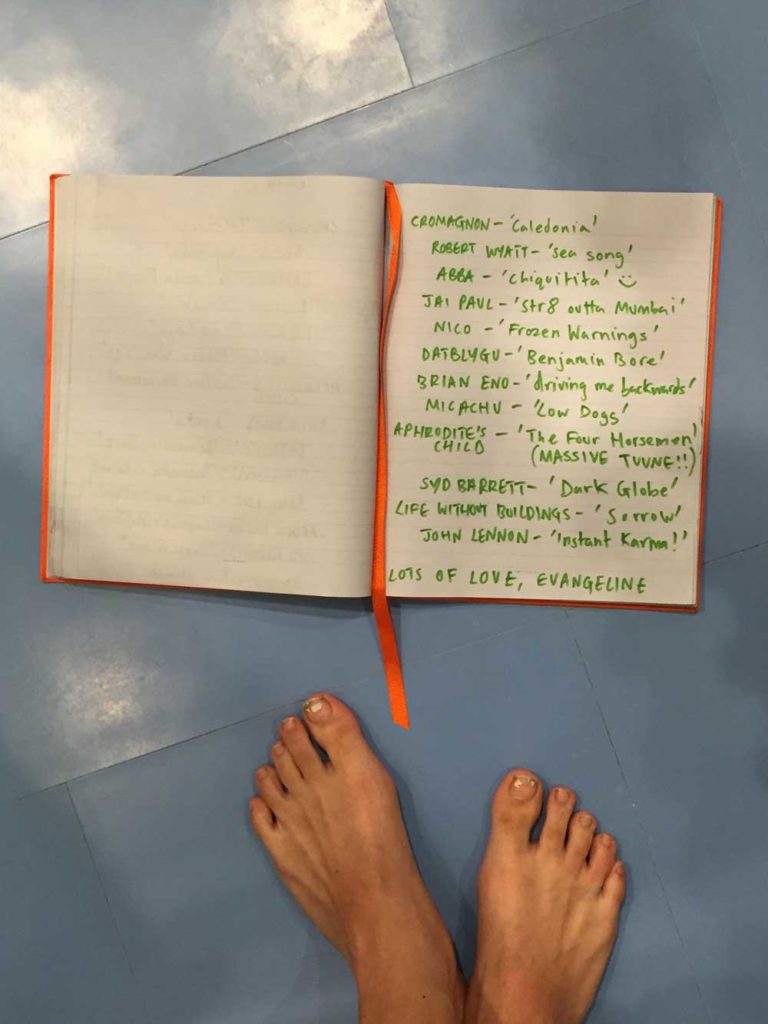 CROMAGNON - 'Caledonia'
ROBERT WYATT - 'sea song'
ABBA - 'chiquitita' :)
JAI PAUL - 'Str8 outta Mumbai'
NICO - 'Frozen Warnings'
DATBLYGU - 'Benjamin Bore'
BRIAN ENO - 'driving me backwards'
MICACHU - 'Low Dogs'
APHRODITE'S CHILD - 'The Four Horsemen'
(MASSIVE TUUNE!!)
SYD BARRETT - 'Dark Globe'
LIFE WITHOUT BUILDINGS - 'Sorrow'
JOHN LENNON - 'Instant Karma!'
LOTS OF LOVE, EVANGELINE